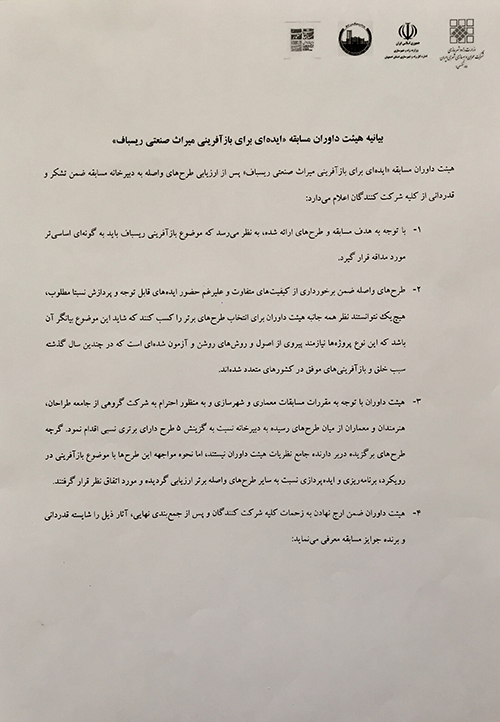 جمهوری اسلامی ایران
بیانیه هیئت داوران مسابقه «ایده‌ای برای بازآفرینی میراث صنعتی ریسباف»
هیئت داوران مسابقه «ایده‌ای برای بازآفرینی میراث صنعتی ریسباف» پس از ارزیابی طرح‌های واصله به دبیرخانه مسابقه ضمن تشکر و
قدردانی از کلیه شرکت کنندگان اعلام می‌دارد:
۱- با توجه به هدف مسابقه و طرح‌های ارائه شده، به نظر می‌رسد که موضوع بازآفرینی ریسباف باید به گونه‌ای اساسی‌تر
مورد مداقه قرار گیرد.
۲- طرح‌های واصله ضمن برخورداری از کیفیت‌های متفاوت و علیرغم حضور ایده‌های قابل توجه و پردازش نسبتا مطلوب،
هیچ‌یک نتوانستند نظر همه جانبه هیئت داوران برای انتخاب طرح‌های برتر را کسب کنند که شاید این موضوع بیانگر آن
باشد که این نوع پروژه‌ها نیازمند پیروی از اصول و روش‌های روشن و آزمون شده‌ای است که در چندین سال گذشته
سبب خلق و بازآفرینی‌های موفق در کشورهای متعدد شده‌اند.
۳- هیئت داوران با توجه به مقررات مسابقات معماری و شهرسازی و به منظور احترام به شرکت گروهی از جامعه طراحان،
هنرمندان و معماران از میان طرح‌های رسیده به دبیرخانه نسبت به گزینش ۵ طرح دارای برتری نسبی اقدام نمود. گرچه
طرح‌های برگزیده دربر دارنده جامع نظریات هیئت داوران نیستند، اما نحوه مواجهه این طرح‌ها با موضوع بازآفرینی در
رویکرد، برنامه‌ریزی و ایده‌پردازی نسبت به سایر طرح‌های واصله برتر ارزیابی گردیده و مورد اتفاق نظر قرار گرفتند.
۴- هیئت داوران ضمن ارج نهادن به زحمات کلیه شرکت کنندگان و پس از جمع‌بندی نهایی، آثار ذیل را شایسته قدردانی
و برنده جوایز مسابقه معرفی می‌نماید: